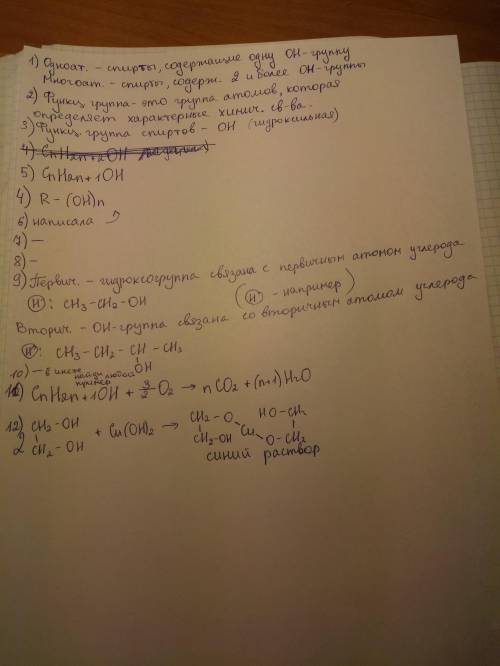 1) Одноат. – спирты, содержащие одну ОН-группу
Многоат. – спирты, содерж. 2 и более ОН-группы
2) Функц. группа – это группа атомов, которая
определяет характерные химич. св-ва.
3) Функц. группа спиртов – ОН (гидроксильная)
4) CnH2n+2OH
5) CnH2n+1OH
4) R – (OH)n
6) написала
7) —
8) –
9) Первич. – гидроксогруппа связана с первичным атомом углерода
(Н): CH3–CH2–OH (Н - например)
Вторич. – ОН-группа связана со вторичным атомом углерода
(Н): CH3 – CH2 – CH – CH3
OH
10) — в инете
найди любой
пример
11) CnH2n+1OH + 3/2 O2 → nCO2 + (n+1)H2O
12) CH2–OH CH2–O HO–CH2
2 + Cu(OH)2 → Cu
CH2–OH CH2–OH O–CH2
синий раствор